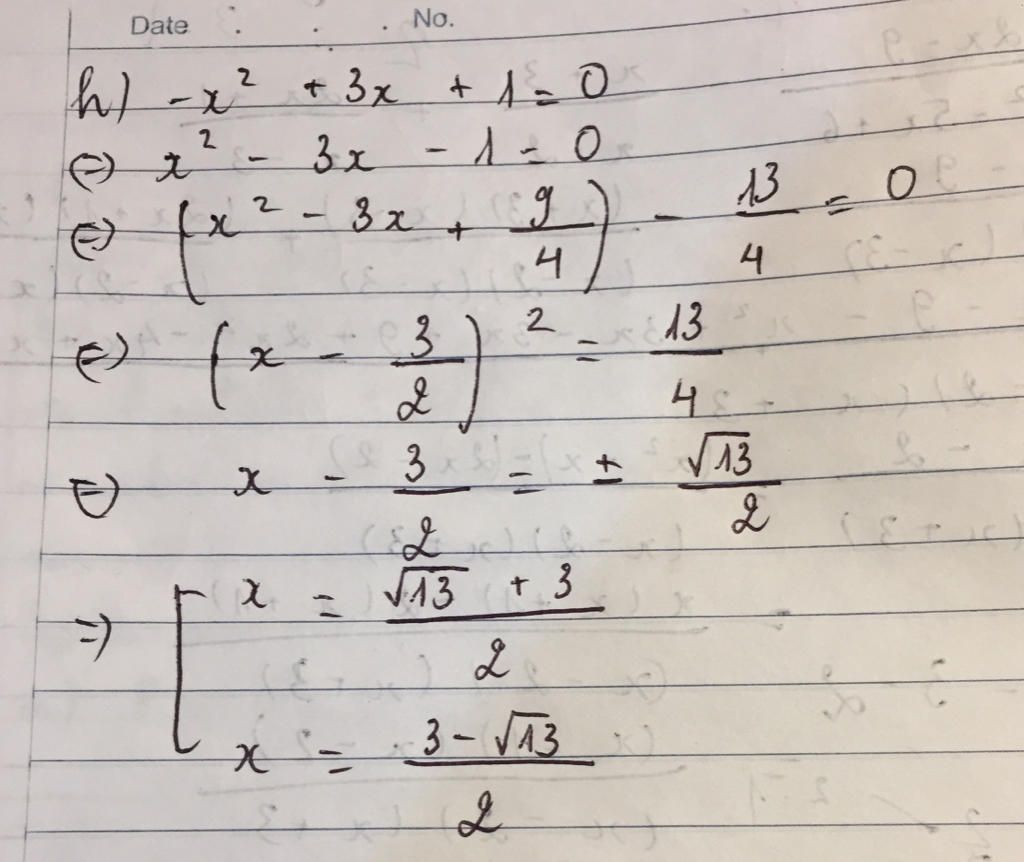 Date . . . No.
h) -x² + 3x + 1 = 0
⇔ x² - 3x - 1 = 0
⇔ (x² - 3x + 9/4) - 13/4 = 0
⇔ (x - 3/2)² = 13/4
⇔ x - 3/2 = ± √13/2
⇒ [ x = (√13 + 3)/2
x = (3 - √13)/2